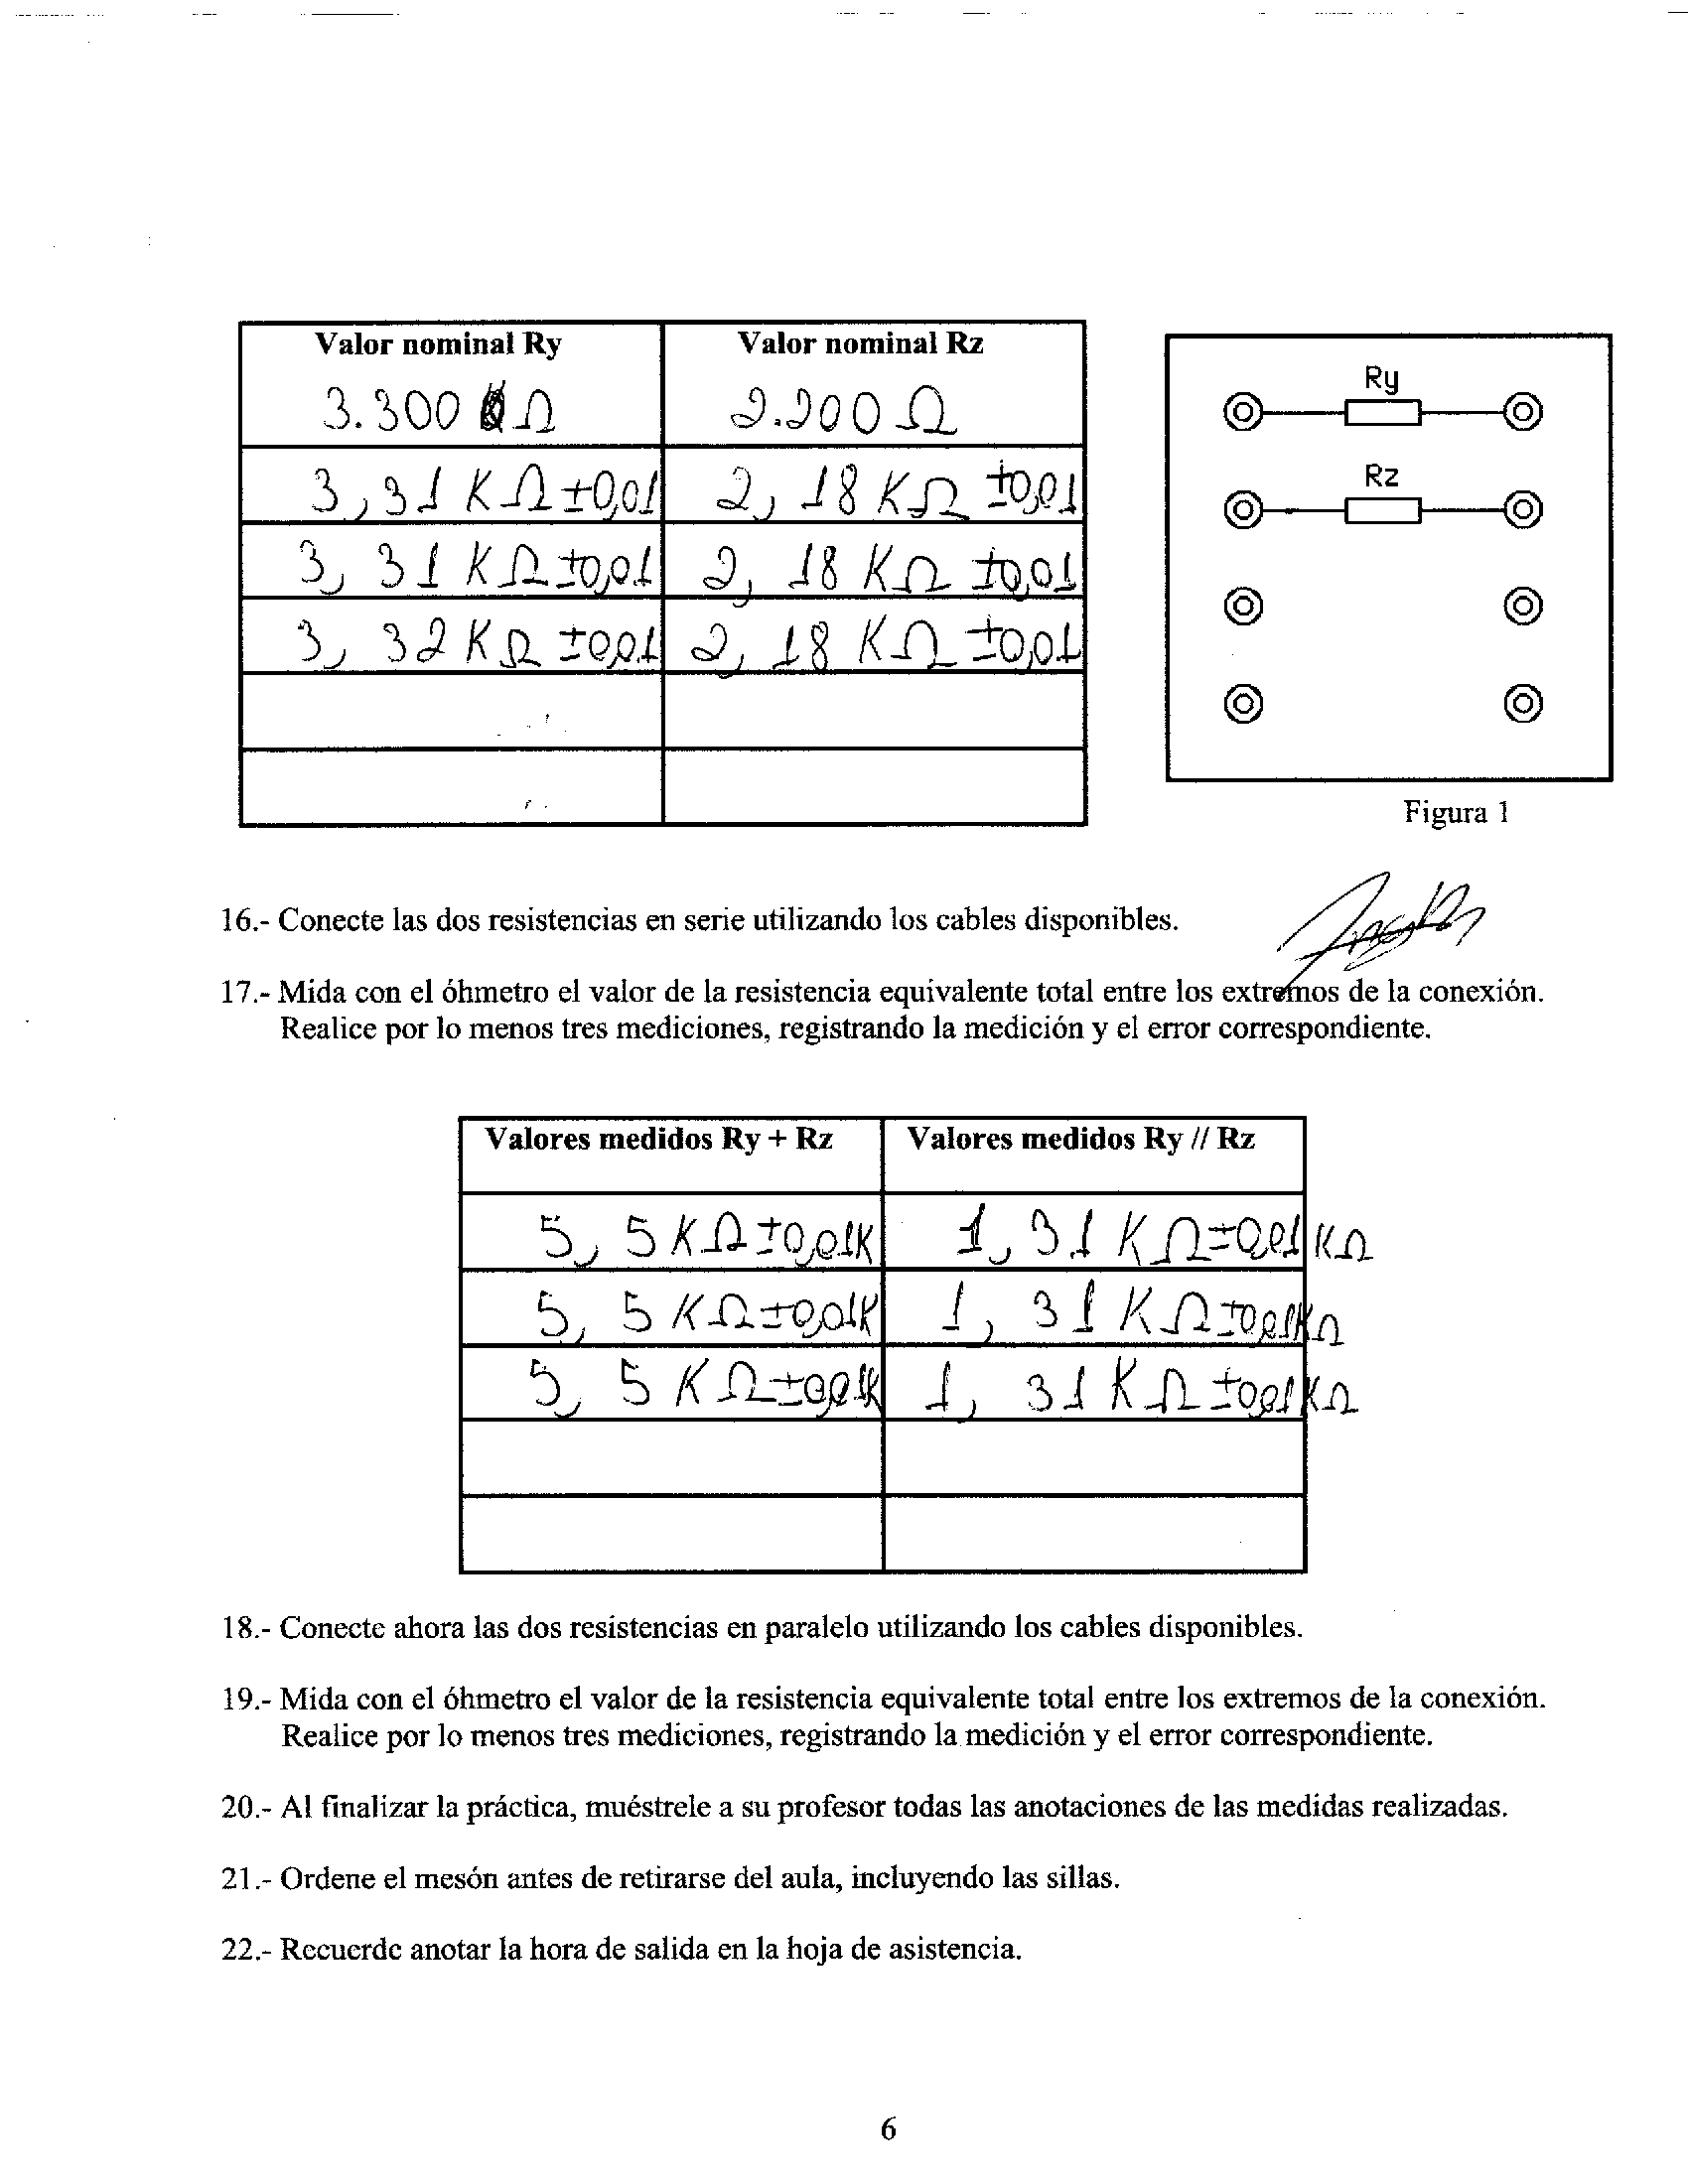 Valor nominal Ry Valor nominal Rz
3.300 Ω 2.200 Ω
3,31 KΩ ±0,01 2,18 KΩ ±0,01
3, 31 KΩ ±0,01 2, 18 KΩ ±0,01
3, 32 KΩ ±0,01 2, 18 KΩ ±0,01
Ry
Rz
Figura 1
16.- Conecte las dos resistencias en serie utilizando los cables disponibles.
17.- Mida con el óhmetro el valor de la resistencia equivalente total entre los extremos de la conexión.
Realice por lo menos tres mediciones, registrando la medición y el error correspondiente.
Valores medidos Ry + Rz Valores medidos Ry // Rz
5, 5 KΩ ±0,01K 1, 31 KΩ ±0,01 KΩ
5, 5 KΩ ±0,01K 1, 31 KΩ ±0,01KΩ
5, 5 KΩ ±0,01K 1, 31 KΩ ±0,01KΩ
18.- Conecte ahora las dos resistencias en paralelo utilizando los cables disponibles.
19.- Mida con el óhmetro el valor de la resistencia equivalente total entre los extremos de la conexión.
Realice por lo menos tres mediciones, registrando la medición y el error correspondiente.
20.- Al finalizar la práctica, muéstrele a su profesor todas las anotaciones de las medidas realizadas.
21.- Ordene el mesón antes de retirarse del aula, incluyendo las sillas.
22.- Recuerde anotar la hora de salida en la hoja de asistencia.
6